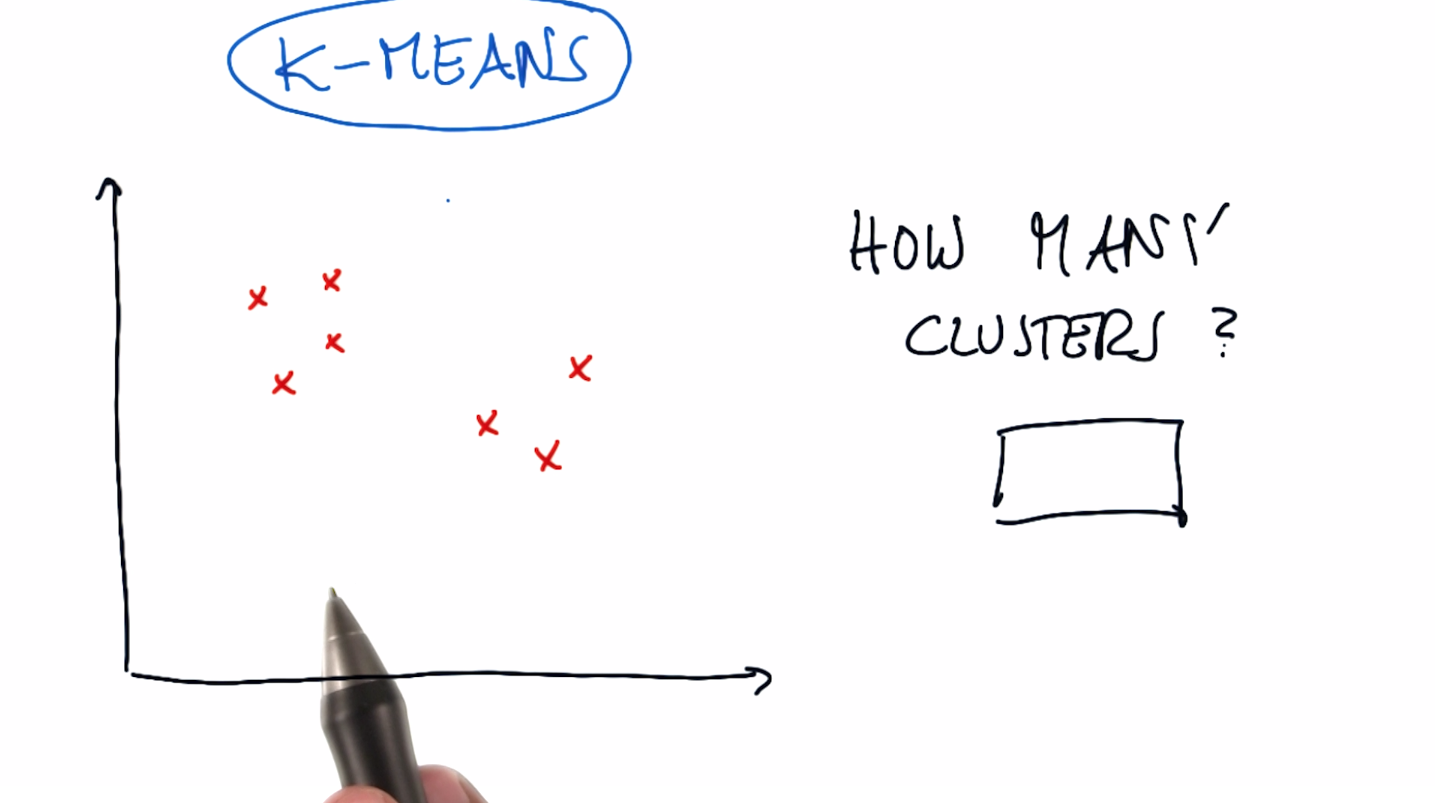 K-MEANS
HOW MANY
CLUSTERS ?